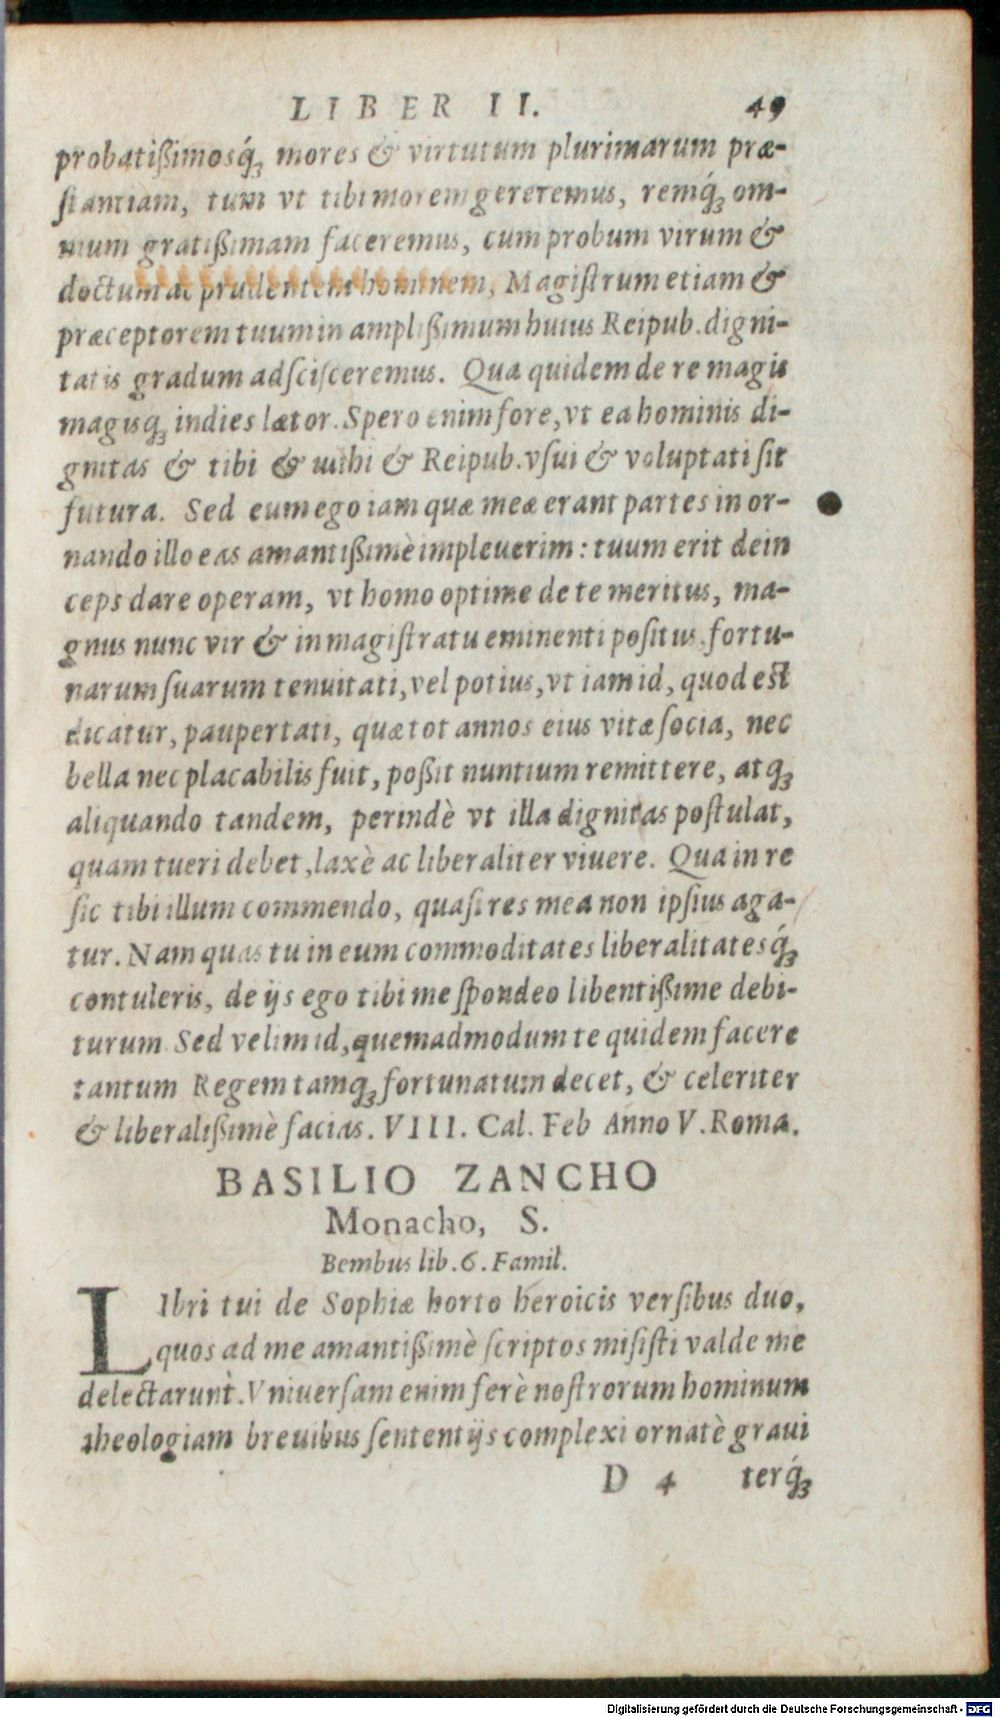 LIBER II. 49
probatißimosq́ꝫ mores & virtutum plurimarum præ-
ſtantiam, tum vt tibi morem gereremus, remq́ꝫ om-
nium gratißimam faceremus, cum probum virum &
doctum ac prudentem hominem, Magiſtrum etiam &
præceptorem tuum in amplißimum huius Reipub. digni-
tatis gradum adſciſceremus. Qua quidem de re magis
magisqꝫ indies lætor. Spero enim fore, vt ea hominis di-
gnitas & tibi & mihi & Reipub. vſui & voluptati ſit
futura. Sed eum ego iam quæ meæ erant partes in or-
nando illo eas amantißimè impleuerim: tuum erit dein
ceps dare operam, vt homo optime de te meritus, ma-
gnus nunc vir & in magiſtratu eminenti poſitus, fortu-
narum ſuarum tenuitati, vel potius, vt iam id, quod est
dicatur, paupertati, quæ tot annos eius vitæ ſocia, nec
bella nec placabilis fuit, poßit nuntium remittere, atqꝫ
aliquando tandem, perindè vt illa dignitas poſtulat,
quam tueri debet, laxè ac liberaliter viuere. Qua in re
ſic tibi illum commendo, quaſi res mea non ipſius aga-
tur. Nam quas tu in eum commoditates liberalitatesq́ꝫ
contuleris, de ijs ego tibi me ſpondeo libentißime debi-
turum. Sed velim id, quemadmodum te quidem facere
tantum Regem tamqꝫ fortunatum decet, & celeriter
& liberalißimè facias. VIII. Cal. Feb Anno V. Roma.
BASILIO ZANCHO
Monacho, S.
Bembus lib. 6. Famil.
LIbri tui de Sophiæ horto heroicis verſibus duo,
quos ad me amantißimè ſcriptos miſiſti valde me
delectarunt. Vniuerſam enim ferè noſtrorum hominum
theologiam breuibus ſententijs complexi ornatè graui
D 4 terq́ꝫ
Digitalisierung gefördert durch die Deutsche Forschungsgemeinschaft - DFG